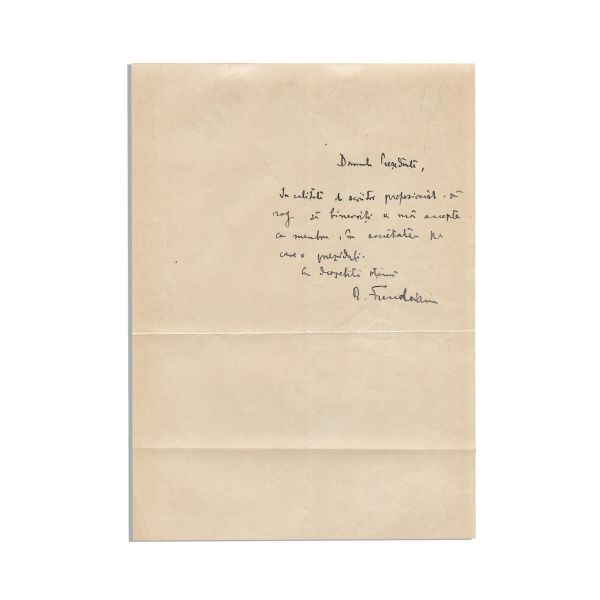 Domnule Președinte,
În calitate de scriitor profesionist vă
rog să binevoiți a mă accepta
ca membru, în societatea pe
care o prezidați.
Cu deosebită stimă
B. Fundoianu